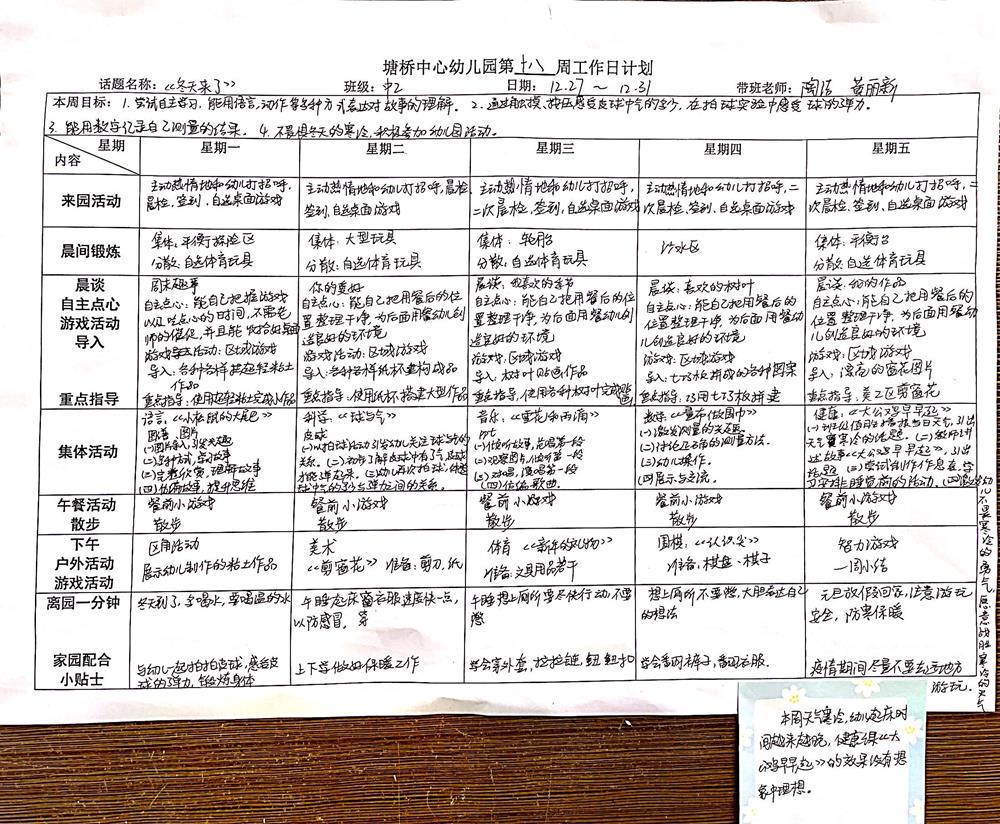 塘桥中心幼儿园第十八周工作日计划
话题名称：《冬天来了》 班级：中2 日期：12.27～12.31 带班老师：陶洁 黄丽新
本周目标：1.尝试自主学习，能用语言，动作等多种方式表达对故事的理解。2.通过触摸、按压感受皮球中气的多少，在拍球实验中感受球的弹力。
3.能用数字记录自己测量的结果。4.不畏惧冬天的寒冷，积极参加幼儿园活动。
星期
内容
星期一 星期二 星期三 星期四 星期五
来园活动
主动热情地和幼儿打招呼，
晨检、签到、自选桌面游戏
主动热情地和幼儿打招呼，晨检
签到、自选桌面游戏
主动热情地和幼儿打招呼，二
次晨检、签到、自选桌面游戏
主动热情地和幼儿打招呼，二
次晨检、签到、自选桌面游戏
主动热情地和幼儿打招呼，二
次晨检、签到、自选桌面游戏
晨间锻炼
集体：平衡探险区
分散：自选体育玩具
集体：大型玩具
分散：自选体育玩具
集体：轮胎
分散：自选体育玩具
沙水区
集体：平衡台
分散：自选体育玩具
晨谈
自主点心
游戏活动
导入
重点指导
周末趣事
自主点心：能自己把握游戏
以及吃点心的时间，不需老
师的催促，并且能收拾好桌面
游戏活动：区域游戏
导入：各种各样超轻粘土
作品
重点指导：使用超轻粘土完成作品
你的爱好
自主点心：能自己把用餐后的位
置整理干净，为后面用餐幼儿创
造良好的环境
游戏活动：区域游戏
导入：各种各样纸杯建构成品
重点指导：使用纸杯搭建大型作品
晨谈：我喜欢的季节
自主点心：能自己把用餐后的位
置整理干净，为后面用餐幼儿创
造良好的环境
游戏：区域游戏
导入：树叶贴画作品
重点指导：使用各种树叶完成贴画
晨谈：喜欢的树叶
自主点心：能自己把用餐后的
位置整理干净，为后面用餐幼
儿创造良好的环境
游戏：区域游戏
导入：七巧板拼成的各种图案
重点指导：巧用七巧板拼建
晨谈：我的作品
自主点心：能自己把用餐后的
位置整理干净，为后面用餐幼
儿创造良好的环境
游戏：区域游戏
导入：漂亮的窗花图片
重点指导：美工区剪窗花
集体活动
语言：《小松鼠的大尾巴》
图片
(一)图片导入，引发兴趣
(三)完整欣赏，理解故事
科学：《球与气》
皮球
音乐：《雪花和雨滴》
(二)观察图片，
(三)对唱，演唱第一段
(四)仿编歌曲。
数学：《量布做围巾》
(一)激发测量的兴趣。
(二)讨论正确的测量方法。
(三)幼儿操作。
(四)展示与交流。
健康：《大公鸡早早起》
午餐活动
散步
餐前小游戏
散步
餐前小游戏
散步
餐前小游戏
散步
餐前小游戏
散步
餐前小游戏
散步
下午
户外活动
游戏活动
区角活动
展示幼儿制作的粘土作品
美术
《剪窗花》 准备：剪刀、纸
体育《新年的礼物》
准备：文具用品若干
围棋：《认识尖》
准备：棋盘、棋子
智力游戏
一周小结
离园一分钟
冬天到了，多喝水，要喝温的水
午睡起床穿衣服速度快一点，
以防感冒。
午睡想上厕所要尽快行动，不要
憋
想上厕所不要憋，大胆表达自己
的想法
元旦放假回家，注意游玩
安全，防寒保暖
家园配合
小贴士
与幼儿一起拍拍皮球，感受皮
球的弹力，锻炼身体
上下学做好保暖工作
学会穿外套，拉拉链，钮钮扣
学会番开裤子，番开衣服。
疫情期间尽量不要去远地方
游玩。
本周天气寒冷，幼儿起床时
间越来越晚，健康课《大
公鸡早早起》的效果没有想
象中理想。